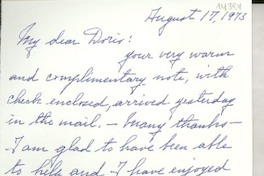 August 17, 1973
My dear Doris:
your very warm
and complimentary note, with
check enclosed, arrived yesterday
in the mail. — Many thanks —
I am glad to have been able
to help and I have enjoyed